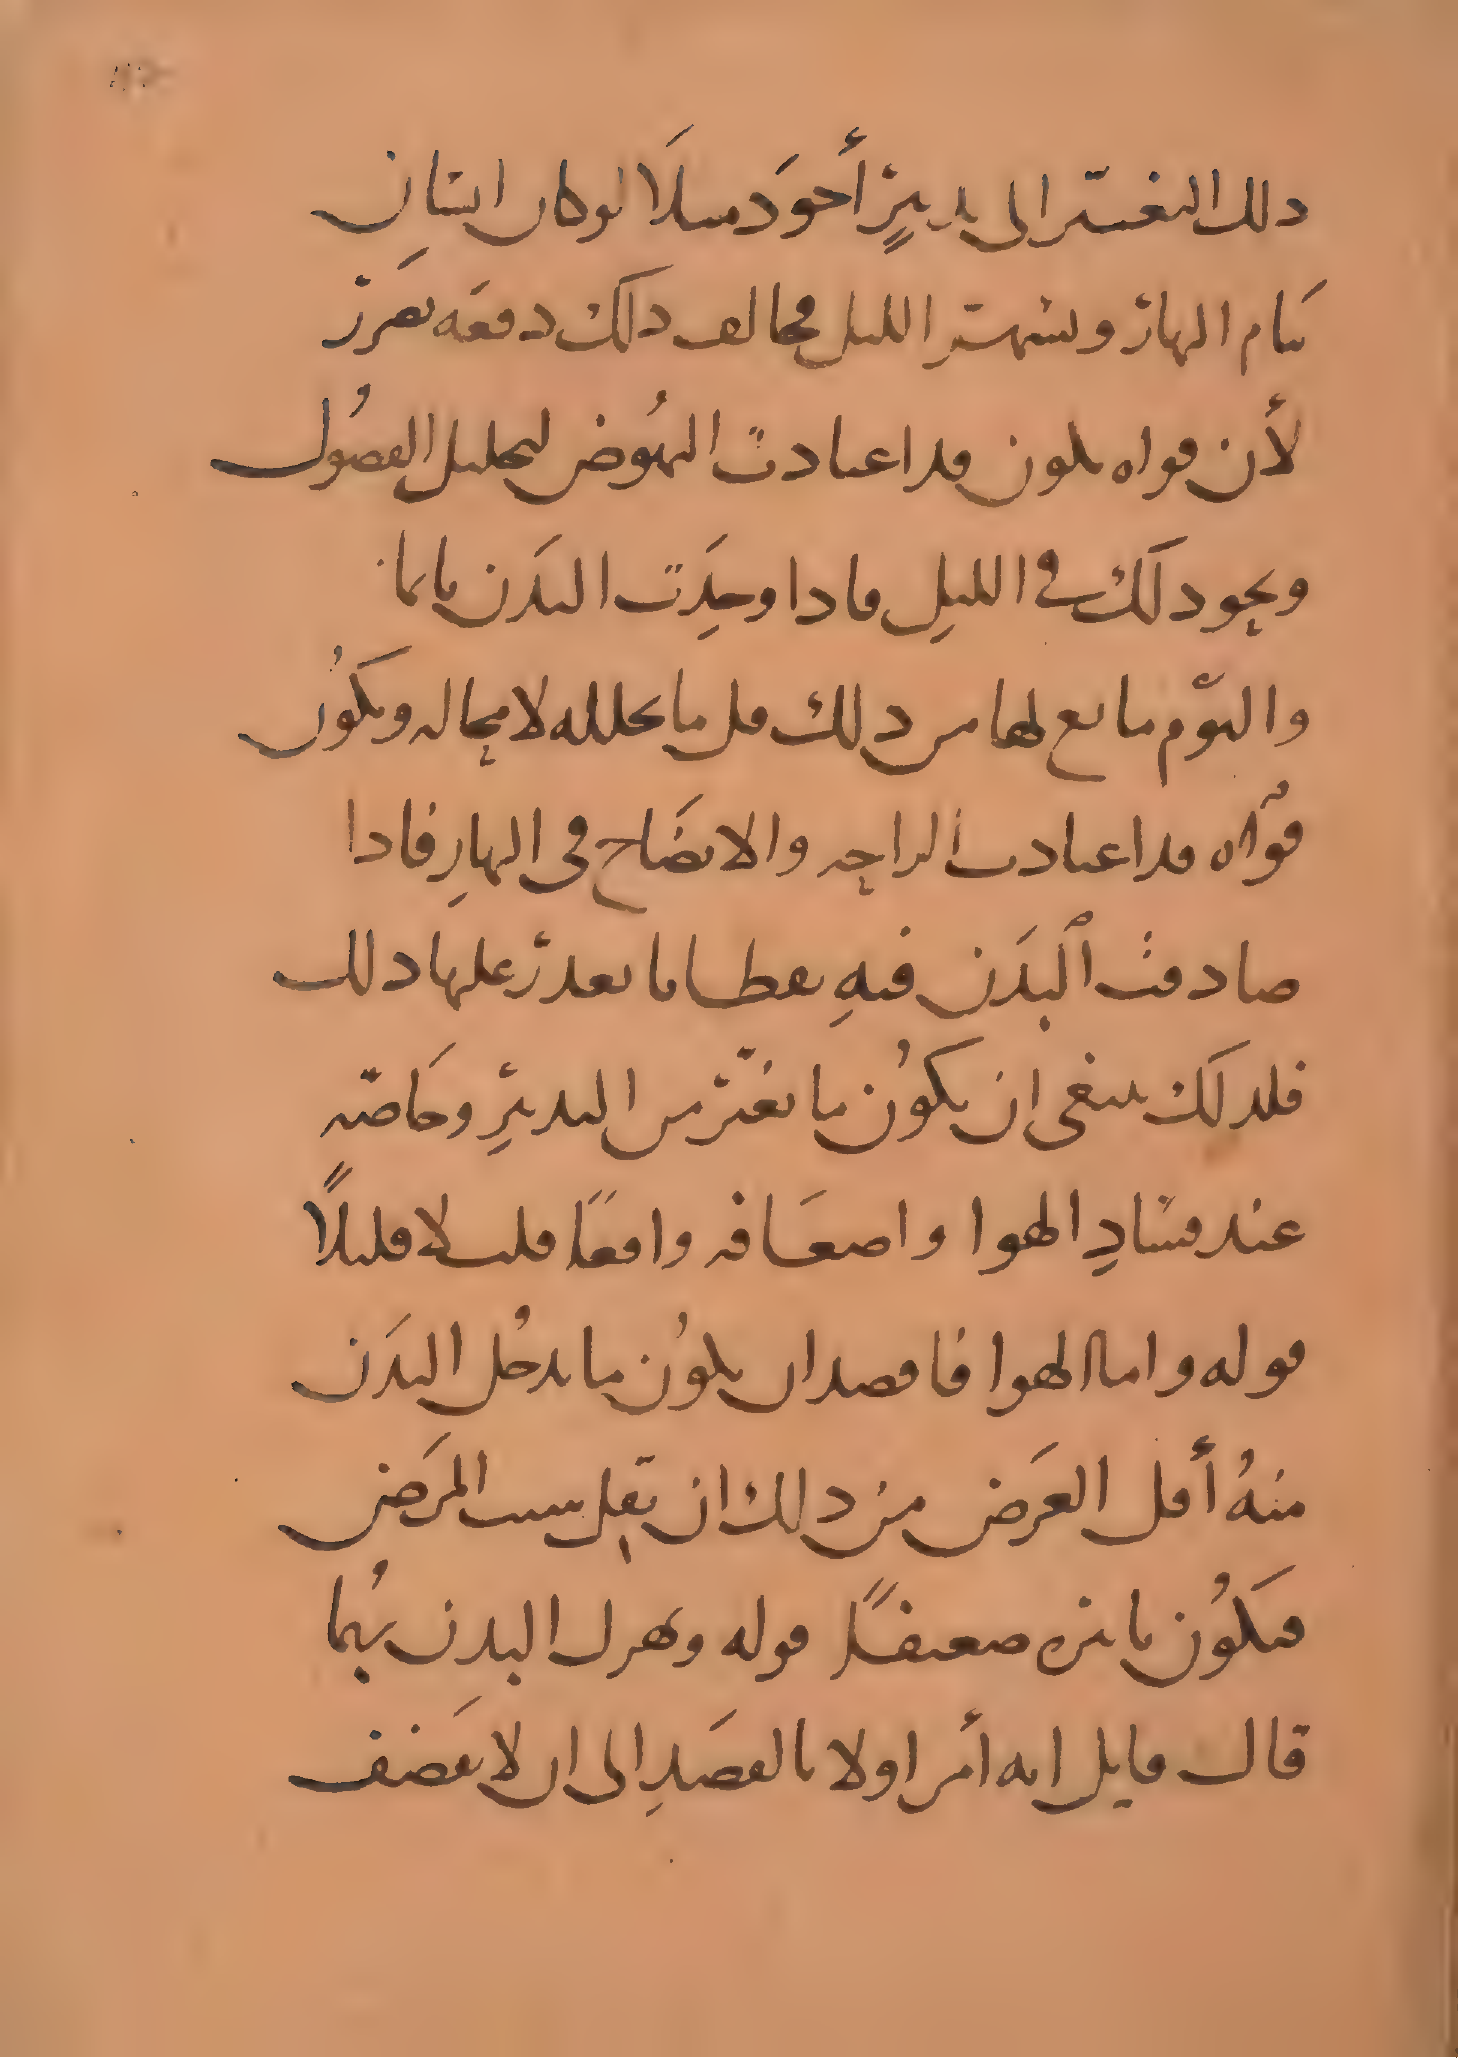 ذلك التغيّر الى تدبيرٍ أجوَد مثلاً لو كان انسان
ينام النهار ويسهر الليل فخالف ذلك دفعَه تضرر
لأن قواه تكون قد اعتادت النهُوض لتحليل الفضُول
ونحو ذلك في الليل فاذا وجدَت البدَن نايما
والنوم مانع لها من ذلك قل ما تحلله لا محاله وتكوُن
قُواه قد اعتادت الراحه والانضاج في النهارِ فاذا
صادفت اَلبدَن فيهِ يقظانا تعذر عليها ذلك
فلذلك ينبغى ان يكوُن ما تغيّر من التدبيرِ وخاصّه
عند فسَادِ الهوا واضعَافه واقعًا قليلا قليلاً
قوله واما الهوا فاقصد ان يكوُن ما يدخُل البدَن
منهُ أقل الغرَض من ذلك ان يقِل سبب المرَض
فيكوُن تاثيره ضعيفًا قوله وهزل البدن بهما
قال قايل انه أمر اولا بالقصَدِ الى ان لا يضعَف